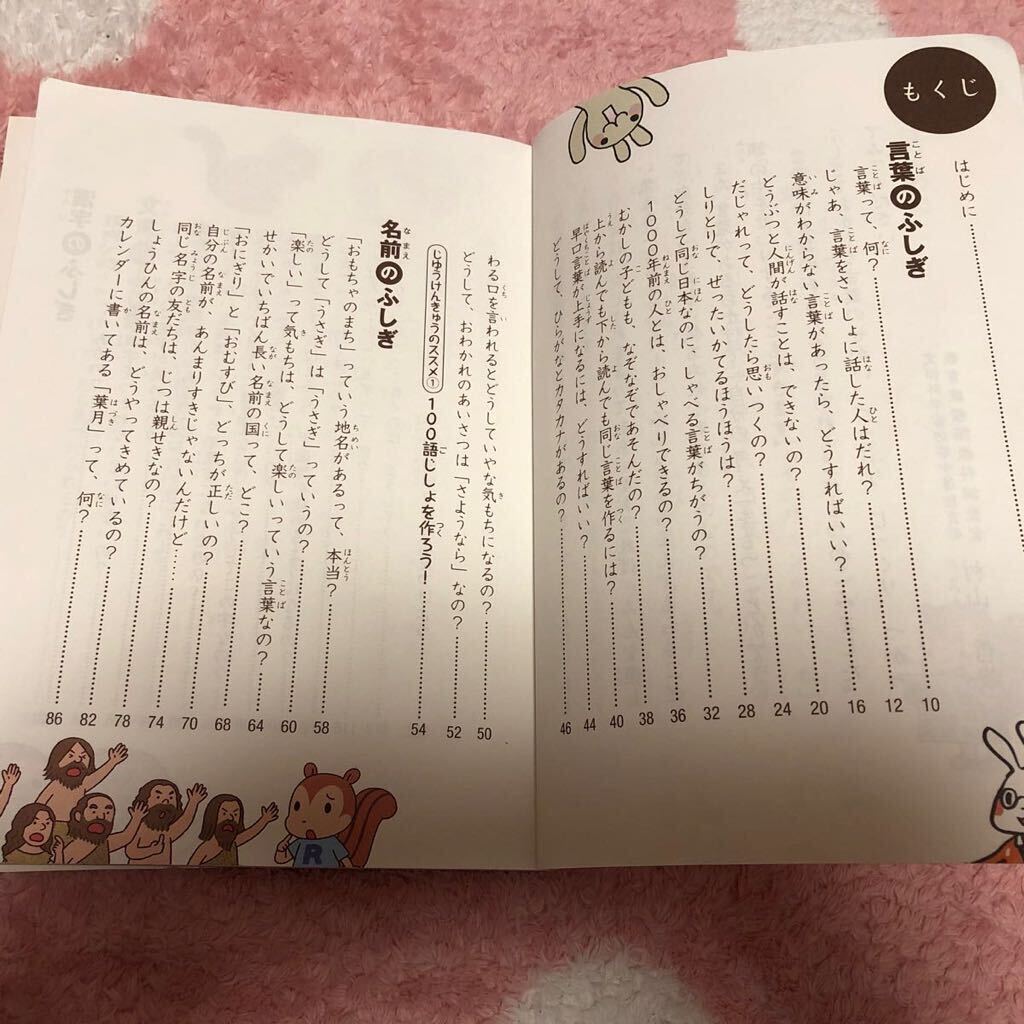 もくじ
はじめに
言葉のふしぎ
言葉って、何?
じゃあ、言葉をさいしょに話した人はだれ?
意味がわからない言葉があったら、どうすればいい?
どうぶつと人間が話すことは、できないの?
だじゃれって、どうしたら思いつくの?
しりとりで、ぜったいかてるほうほうは?
どうして同じ日本なのに、しゃべる言葉がちがうの?
1000年前の人とは、おしゃべりできるの?
むかしの子どもも、なぞなぞであそんだの?
上から読んでも下から読んでも同じ言葉を作るには?
早口言葉が上手になるには、どうすればいい?
どうして、ひらがなとカタカナがあるの?
10
12
16
20
24
28
32
36
38
40
44
46
わる口を言われるとどうしていやな気もちになるの? 50
どうして、おわかれのあいさつは「さようなら」なの? 52
じゆうけんきゅうのススメ① 100語じしょを作ろう! 54
名前のふしぎ
「おもちゃのまち」っていう地名があるって、本当? 58
どうして「うさぎ」は「うさぎ」っていうの? 60
「楽しい」って気もちは、どうして楽しいっていう言葉なの? 64
せかいでいちばん長い名前の国って、どこ? 68
「おにぎり」と「おむすび」、どっちが正しいの? 70
自分の名前が、あんまりすきじゃないんだけど…… 74
同じ名字の友だちは、じつは親せきなの? 78
しょうひんの名前は、どうやってきめているの? 82
カレンダーに書いてある「葉月」って、何? 86
R